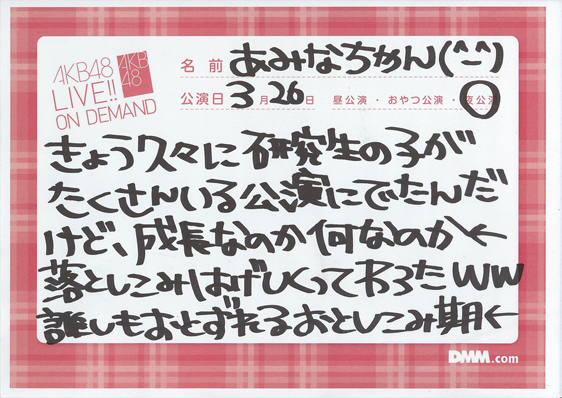 AKB48
LIVE!!
ON DEMAND
AKB
48
名前 あみなちゃん(^-^)
公演日 3月26日 昼公演・おやつ公演・夜公演
きょう久々に研究生の子が
たくさんいる公演にでたんだ
けど、成長なのか何なのか←
落としこみはげしくってわろたww
誰しもおとずれるおとしこみ期←
DMM.com